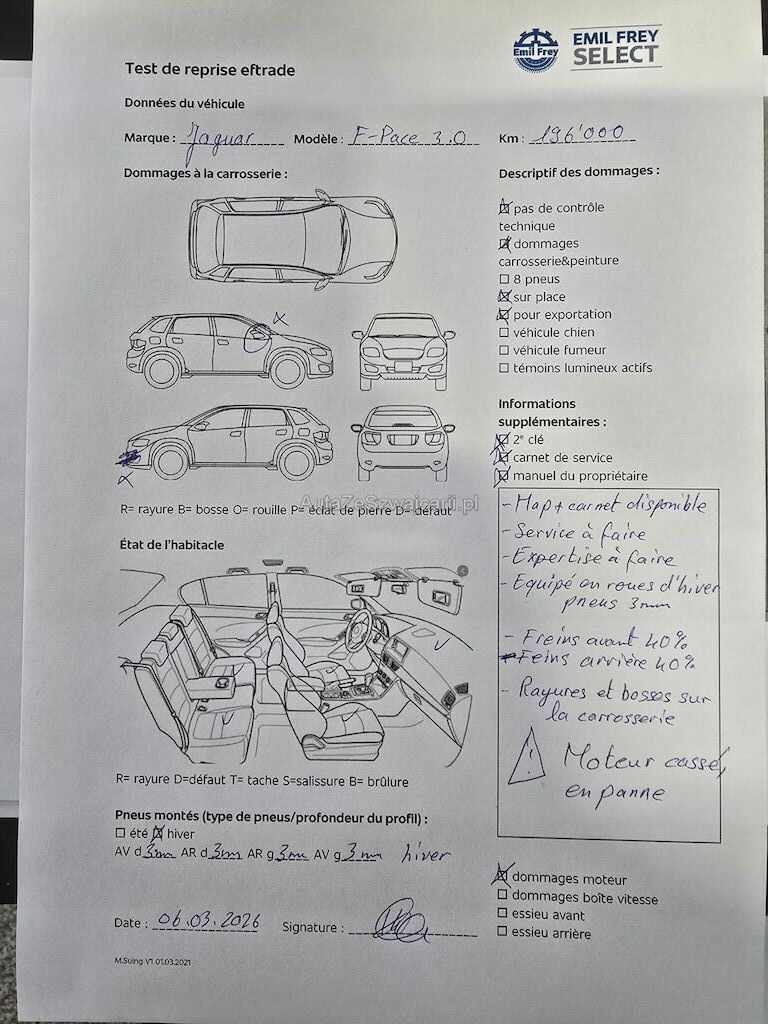 Emil Frey
EMIL FREY
SELECT
Test de reprise eftrade
Données du véhicule
Marque : Jaguar Modèle : F-Pace 3.0 Km : 196'000
Dommages à la carrosserie :
R= rayure B= bosse O= rouille P= éclat de pierre D= défaut
État de l'habitacle
R= rayure D=défaut T= tache S=salissure B= brûlure
Pneus montés (type de pneus/profondeur du profil) :
☐ été ☒ hiver
AV d 3mm AR d 3mm AR g 3mm AV g 3mm hiver
Date : 06.03.2026 Signature :
M.Suing V1 01.03.2021
Descriptif des dommages :
☒ pas de contrôle
technique
☒ dommages
carrosserie&peinture
☐ 8 pneus
☒ sur place
☒ pour exportation
☐ véhicule chien
☐ véhicule fumeur
☐ témoins lumineux actifs
Informations
supplémentaires :
☒ 2e clé
☒ carnet de service
☒ manuel du propriétaire
- Map + carnet disponible
- Service à faire
- Expertise à faire
- Equipé en roues d'hiver
pneus 3mm
- Freins avant 40%
- Feins arrière 40%
- Rayures et bosses sur
la carrosserie
! Moteur cassé,
en panne
☒ dommages moteur
☐ dommages boîte vitesse
☐ essieu avant
☐ essieu arrière
AutaZeSzwajcarii.pl